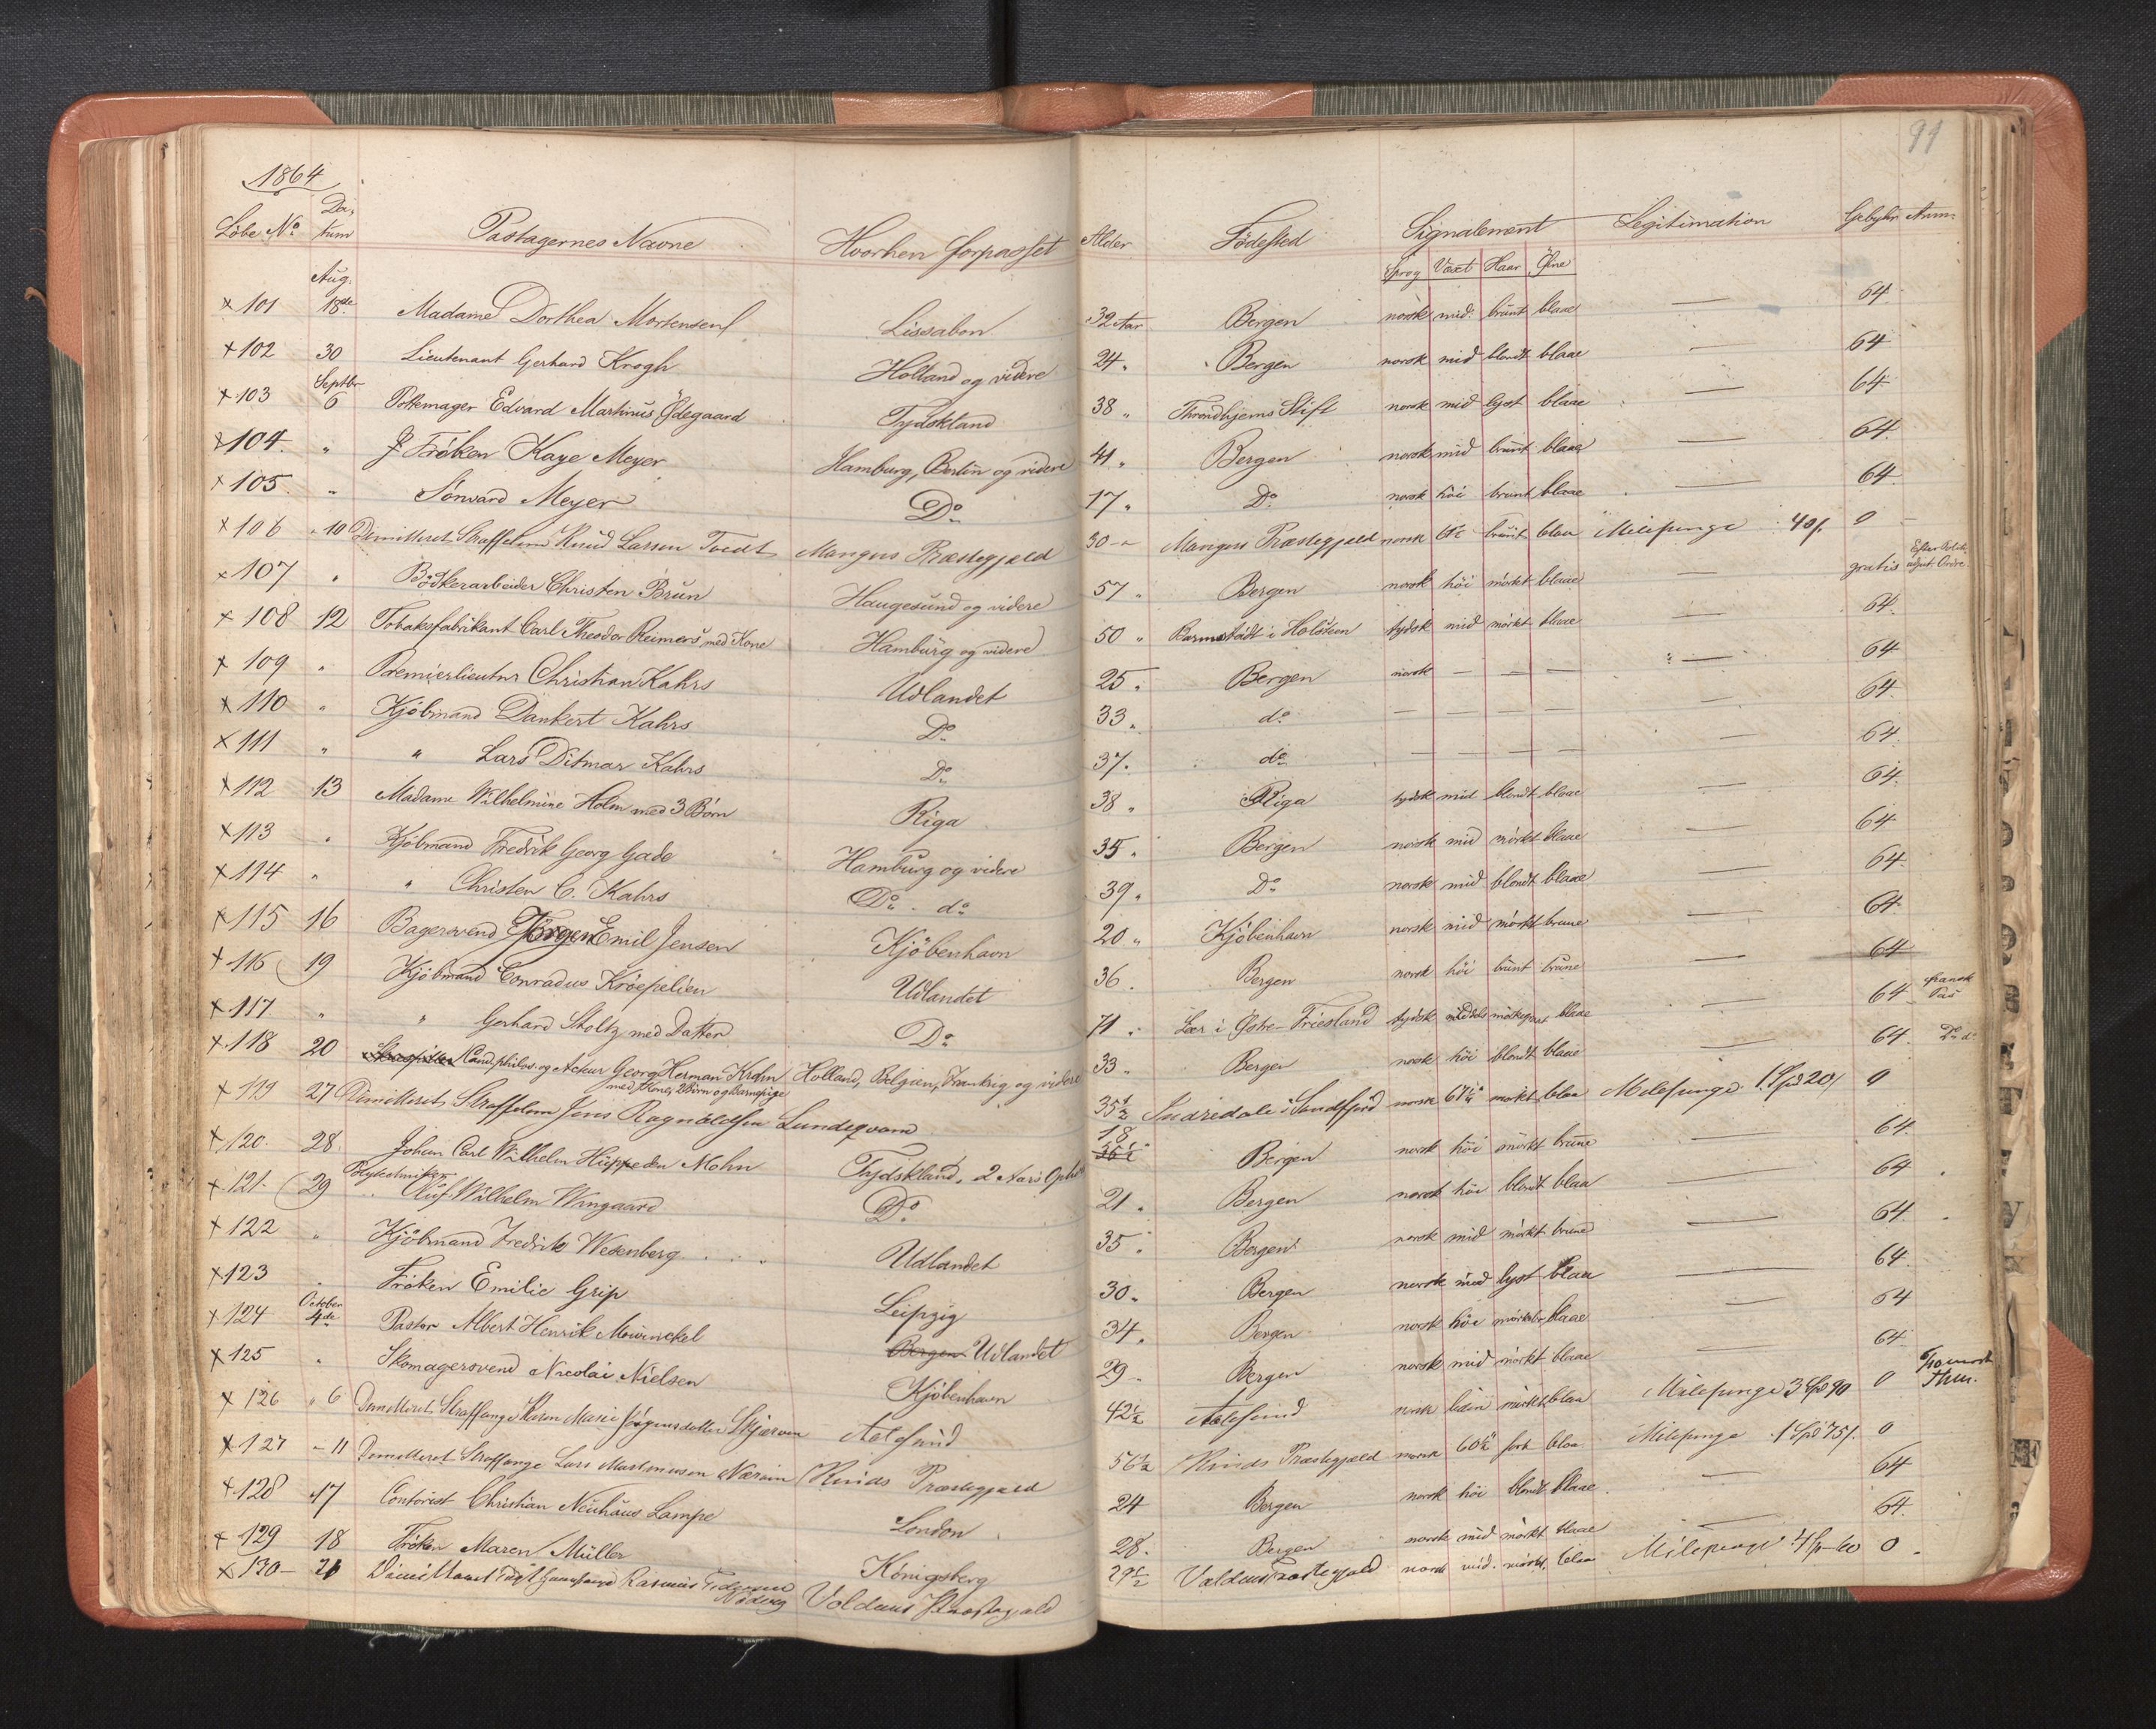 91
1864
Löbe No Datum Pastagernes Navne Hvorhen forpasset Alder Födested Signalement Legitimation Gebyhr Anm:
Sprog Växt Haar Öine
Aug.
x 101 18de Madame Dorthea Mortensen Lissabon 32 Aar Bergen norsk mid: brunt blaae — 64
x 102 30 Lieutenant Gerhard Krogh Holland og videre 24 " Bergen norsk mid blondt blaae — 64
Septbr
x 103 6 Edvard Martinus Ödegaard Tydskland 38 " Throndhjems Stift norsk mid lyst blaae — 64
x 104. " Fröken Kaye Meyer Hamburg, Berlin og videre 41 " Bergen norsk mid brunt blaae — 64.
x 105 " Meyer Do 17 " Do norsk höi brunt blaae — 64
x 106 " 10 Dimitteret Knud Larsen Tvedt Mangers Præstegjæld 30 - " Mangers Præstegjæld norsk brunt blaa Milepenge 40/. 0
x 107 " Bödkerarbeider Christen Brun Haugesund og videre 57 " Bergen norsk höi mörkt blaae — gratis Efter Ordre
x 108 12 Tobaksfabrikant Carl Theodor Reimers med Kone Hamburg og videre 50 " Barmstädt i Holsteen tydsk mid mörkt blaae — 64.
x 109 " Premierlieutnr Christian Kahrs Udlandet 25 " Bergen norsk — — — — 64
x 110 " Kjöbmand Dankert Kahrs Do 33 " do — — — — — 64.
x 111 " " Lars Ditmar Kahrs Do 37. do — — — — — 64
x 112 13 Madame Wilhelmine Holm med 3 Börn Riga 38 " Riga tydsk mid blondt blaae — 64.
x 113 " Kjöbmand Fredrik Georg Gade Hamburg og videre 35 " Bergen norsk mid mörkt blaae — 64
x 114 " " Christen C. Kahrs Do do 39 " Do norsk mid blondt blaae — 64.
x 115 16 Bagersvend Jörgen Emil Jensen Kjöbenhavn 20 " Kjöbenhavn norsk mid mörkt brune — 64.
x 116 19 Kjöbmand Conradus Kröepelien Udlandet 36 . Bergen norsk höi brunt brune — 64
x 117. " " Gerhard Stoltz med Datter Do 71 " Leer i Östre-Friesland tydsk blaae — 64 fransk Pas
x 118 20 Cand. philos. og Acteur Georg Herman Krohn Holland, Belgien, Frankrig og videre 33 " Bergen norsk höi blondt blaae — 64. Do do
med Kone, 2 Börn og Barnepige
x 119 27 Dimitteret Jens Ragnaldsen Lundeqvam 35½ i Sundfjord norsk mörkt blaa Milepenge 1 Spd 20/ 0
x 120. 28 Johan Carl Wilhelm Hüppeden Mohn Tydskland, 2 Aars 18 Bergen norsk höi mörkt brune — 64.
Polytechniker
x 121. 29 Wilhelm Wingaard Do 21 " Bergen norsk höi blondt blaa — 64
x 122 " Kjöbmand Fredrik Wesenberg Udlandet 35 " Bergen norsk mid mörkt brune — 64.
x 123 " Fröken Emilie Grip Leipzig 30 " Bergen norsk mid lyst blaa — 64.
October
x 124 4de Pastor Albert Henrik Mowinckel Bergen Udlandet 34 " Bergen norsk höi blaae — 64
x 125 " Skomagersvend Nicolai Nielsen Kjöbenhavn 29 " Bergen norsk mid mörkt blaae — 64.
x 126 " 6 Dimitteret Straffange Karen Marie Jörgensdatter Skjærven Aalesund 42½ Aalesund norsk liden mörkt blaa Milepenge 3 Spd 90 0
x 127 - 11 Dimitteret Straffange Lars Kinds Præstegjæld 56½ Kinds Præstegjæld norsk blaa Milepenge 1 Spd 75/. 0
x 128 17 Contorist Christian Neuhaus Lampe London 24 Bergen norsk höi blondt blaae — 64
x 129 18 Fröken Maren Müller Königsberg 28 " Bergen norsk mid mörkt blaae — 64.
x 130 - 21 Dimitteret Rasmus Voldens Præstegjæld 29½ Voldens Præstegjæld norsk mid. mörkt blaa Milepenge 0